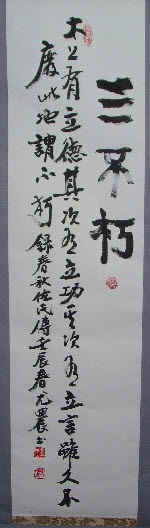 三不朽
太上有立德其次有立功其次有立言雖久不
廢此之謂不朽 錄春秋左氏傳壬辰春